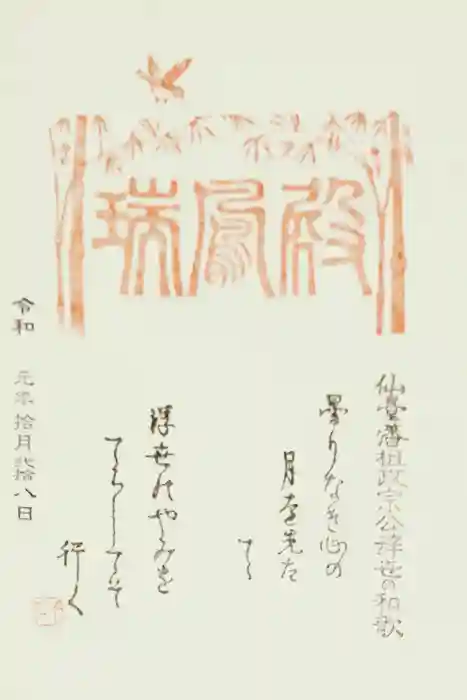 瑞鳳殿
仙臺藩祖政宗公辞世の和歌
曇りなき心の
月を先だ
て
浮世のやみを
てらしてぞ
行く
令和 元年拾月弐拾八日